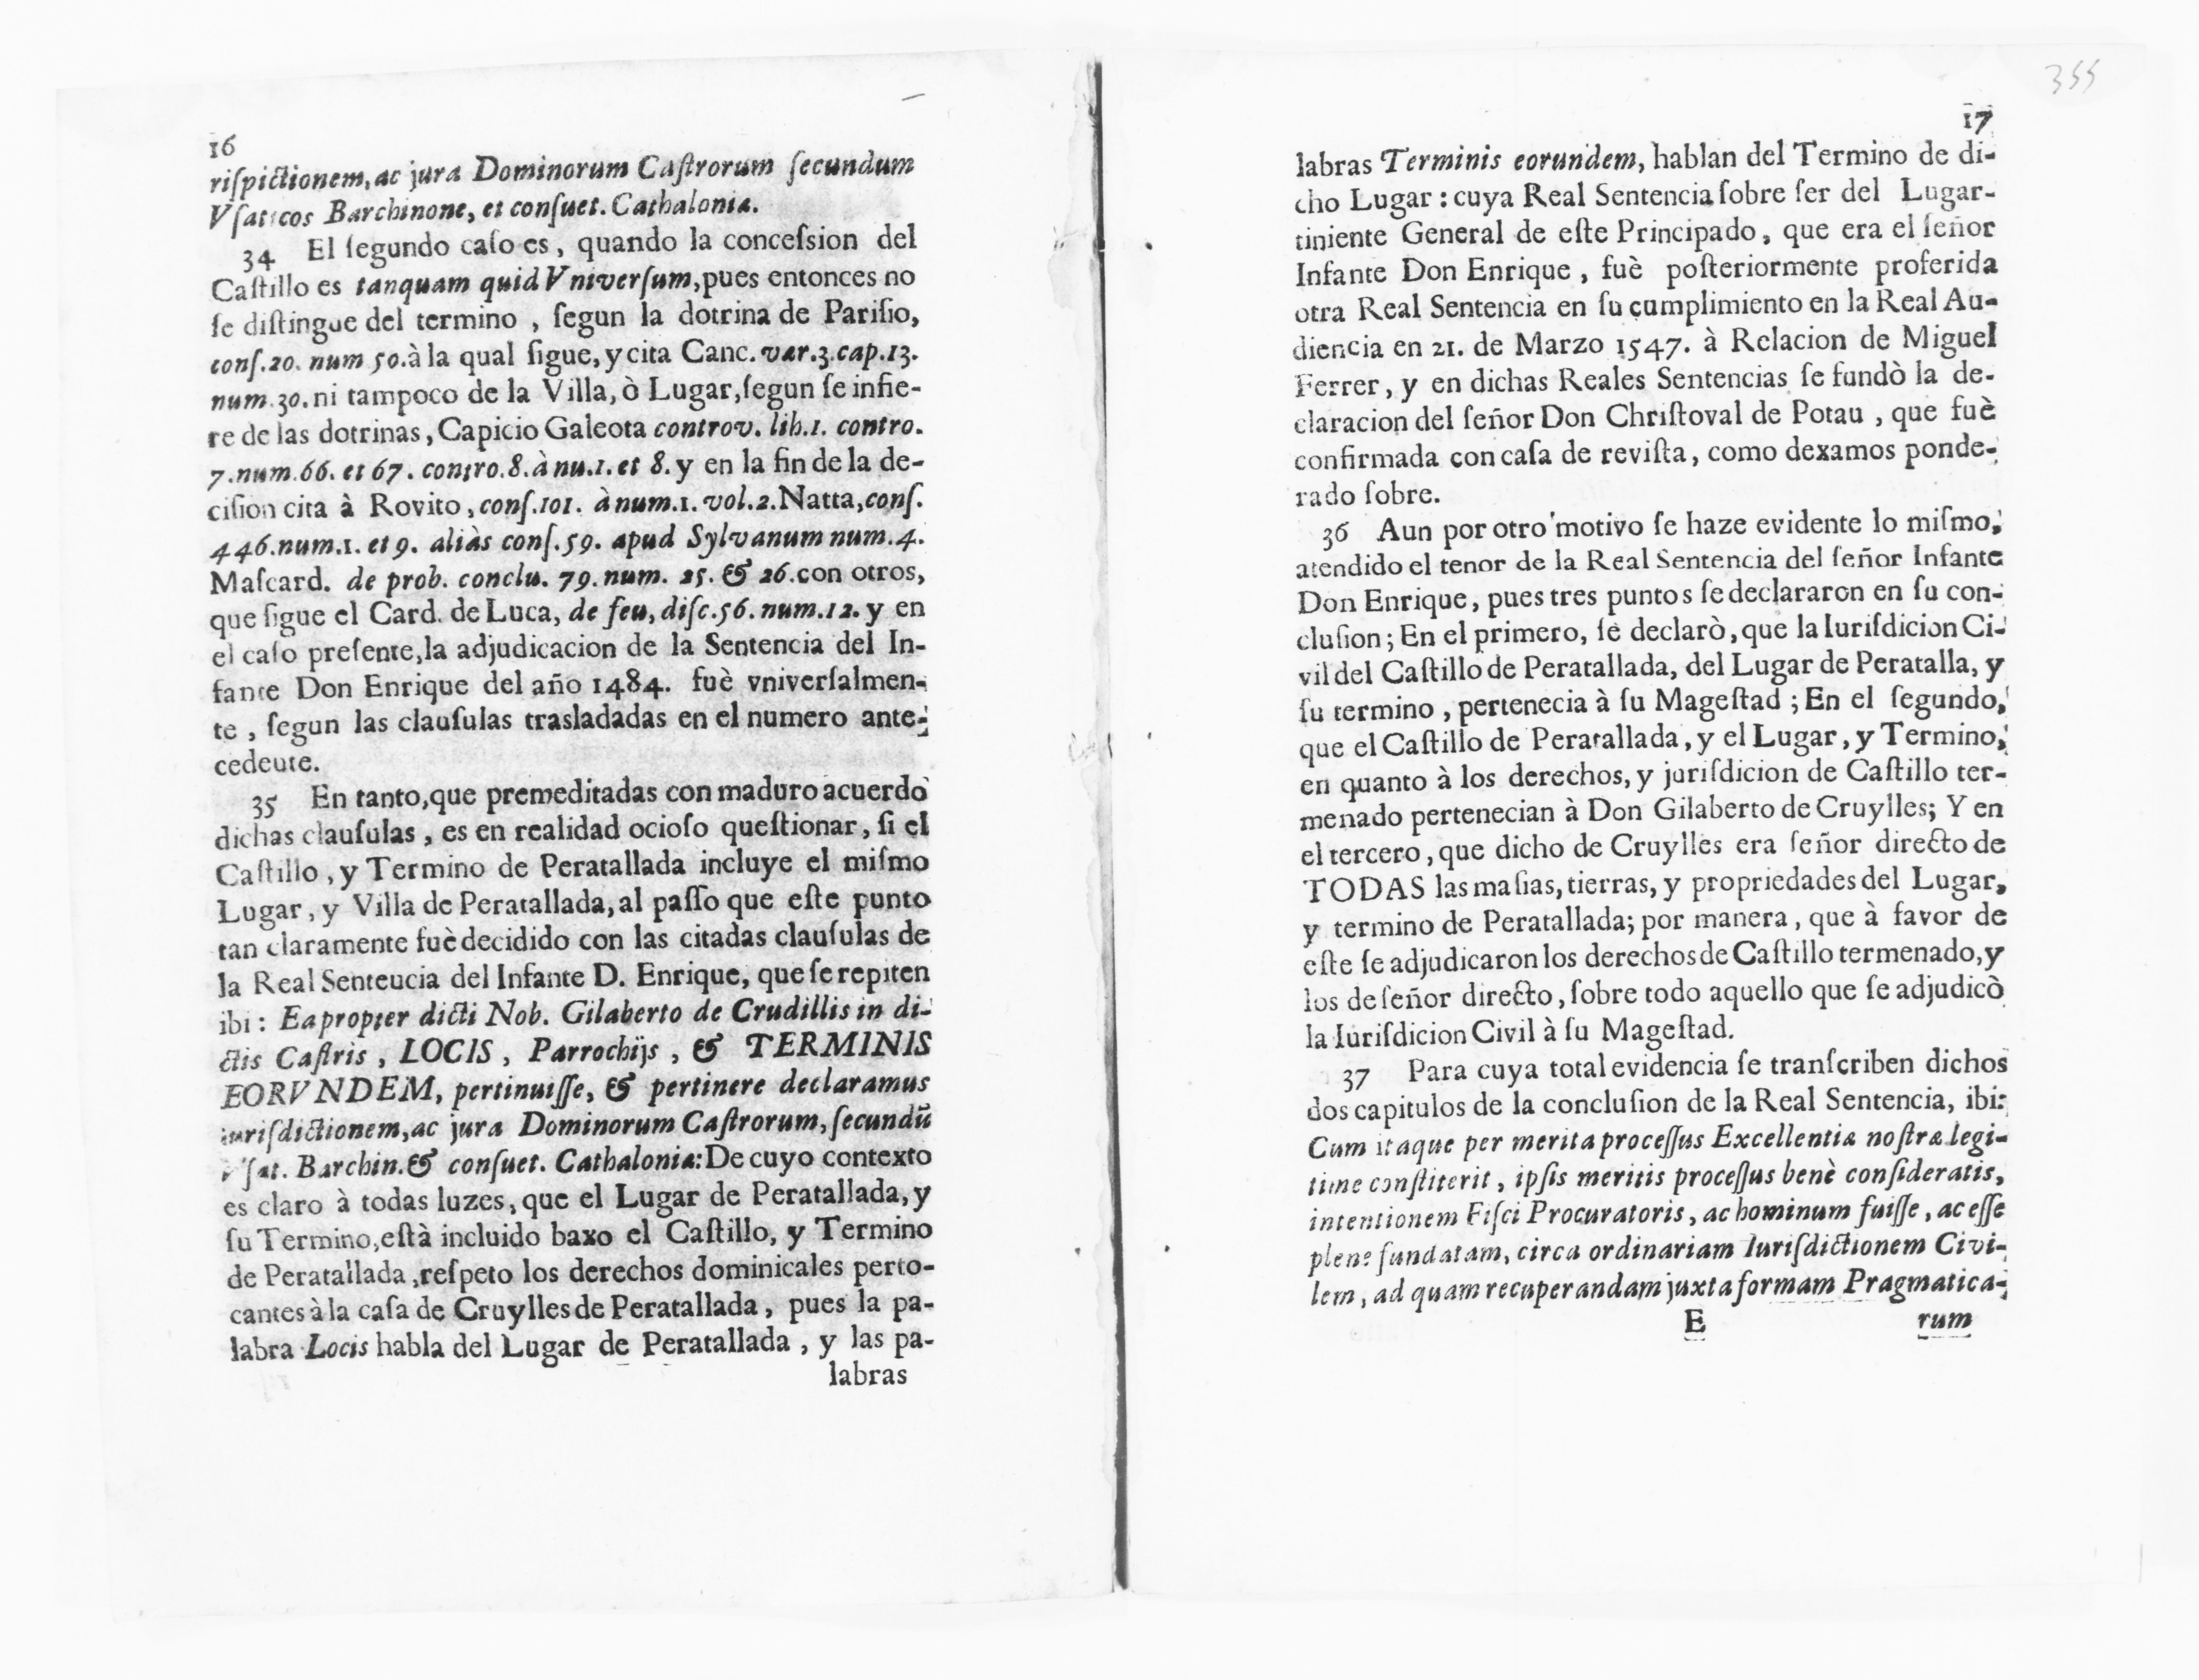 16
riſpictionem, ac jura Dominorum Caſtrorum ſecundum
Vſaticos Barchinone, et conſuet. Cathaloniæ.
34 El ſegundo caſo es, quando la conceſsion del
Caſtillo es tanquam quid Vniverſum, pues entonces no
ſe diſtingue del termino, ſegun la dotrina de Pariſio,
conſ.20. num 50. à la qual ſigue, y cita Canc. var.3.cap.13.
num.30. ni tampoco de la Villa, ò Lugar, ſegun ſe infie-
re de las dotrinas, Capicio Galeota controv. lib.1. contro.
7.num.66. et 67. contro.8. à nu.1. et 8. y en la fin de la de-
ciſion cita à Rovito, conſ.101. à num.1. vol.2. Natta, conſ.
446.num.1. et 9. aliàs conſ.59. apud Sylvanum num.4.
Maſcard. de prob. conclu. 79. num. 25. & 26. con otros,
que ſigue el Card. de Luca, de feu, diſc.56. num.12. y en
el caſo preſente, la adjudicacion de la Sentencia del In-
fante Don Enrique del año 1484. fuè vniverſalmen-
te, ſegun las clauſulas trasladadas en el numero ante-
cedeute.
35 En tanto, que premeditadas con maduro acuerdo
dichas clauſulas, es en realidad ocioſo queſtionar, ſi el
Caſtillo, y Termino de Peratallada incluye el miſmo
Lugar, y Villa de Peratallada, al paſſo que eſte punto
tan claramente fuè decidido con las citadas clauſulas de
la Real Senteucia del Infante D. Enrique, que ſe repiten
ibi: Eapropter dicti Nob. Gilaberto de Crudillis in di-
ctis Caſtris, LOCIS, Parrochijs, & TERMINIS
EORVNDEM, pertinuiſſe, & pertinere declaramus
iuriſdictionem, ac jura Dominorum Caſtrorum, ſecundũ
Vſat. Barchin. & conſuet. Cathaloniæ: De cuyo contexto
es claro à todas luzes, que el Lugar de Peratallada, y
ſu Termino, eſtà incluido baxo el Caſtillo, y Termino
de Peratallada, reſpeto los derechos dominicales perto-
cantes à la caſa de Cruylles de Peratallada, pues la pa-
labra Locis habla del Lugar de Peratallada, y las pa-
labras
355
17
labras Terminis eorundem, hablan del Termino de di-
cho Lugar: cuya Real Sentencia ſobre ſer del Lugar-
tiniente General de eſte Principado, que era el ſeñor
Infante Don Enrique, fuè poſteriormente proferida
otra Real Sentencia en ſu cumplimiento en la Real Au-
diencia en 21. de Marzo 1547. à Relacion de Miguel
Ferrer, y en dichas Reales Sentencias ſe fundò la de-
claracion del ſeñor Don Chriſtoval de Potau, que fuè
confirmada con caſa de reviſta, como dexamos ponde-
rado ſobre.
36 Aun por otro motivo ſe haze evidente lo miſmo,
atendido el tenor de la Real Sentencia del ſeñor Infante
Don Enrique, pues tres puntos ſe declararon en ſu con-
cluſion; En el primero, ſe declarò, que la Iuriſdicion Ci-
vil del Caſtillo de Peratallada, del Lugar de Peratalla, y
ſu termino, pertenecia à ſu Mageſtad; En el ſegundo,
que el Caſtillo de Peratallada, y el Lugar, y Termino,
en quanto à los derechos, y juriſdicion de Caſtillo ter-
menado pertenecian à Don Gilaberto de Cruylles; Y en
el tercero, que dicho de Cruylles era ſeñor directo de
TODAS las maſias, tierras, y propriedades del Lugar,
y termino de Peratallada; por manera, que à favor de
eſte ſe adjudicaron los derechos de Caſtillo termenado, y
los de ſeñor directo, ſobre todo aquello que ſe adjudicò
la Iuriſdicion Civil à ſu Mageſtad.
37 Para cuya total evidencia ſe tranſcriben dichos
dos capitulos de la concluſion de la Real Sentencia, ibi:
Cum itaque per merita proceſſus Excellentiæ noſtræ legi-
time conſtiterit, ipſis meritis proceſſus benè conſideratis,
intentionem Fiſci Procuratoris, ac hominum fuiſſe, ac eſſe
plene fundatam, circa ordinariam Iuriſdictionem Civi-
lem, ad quam recuperandam juxta formam Pragmatica-
E rum